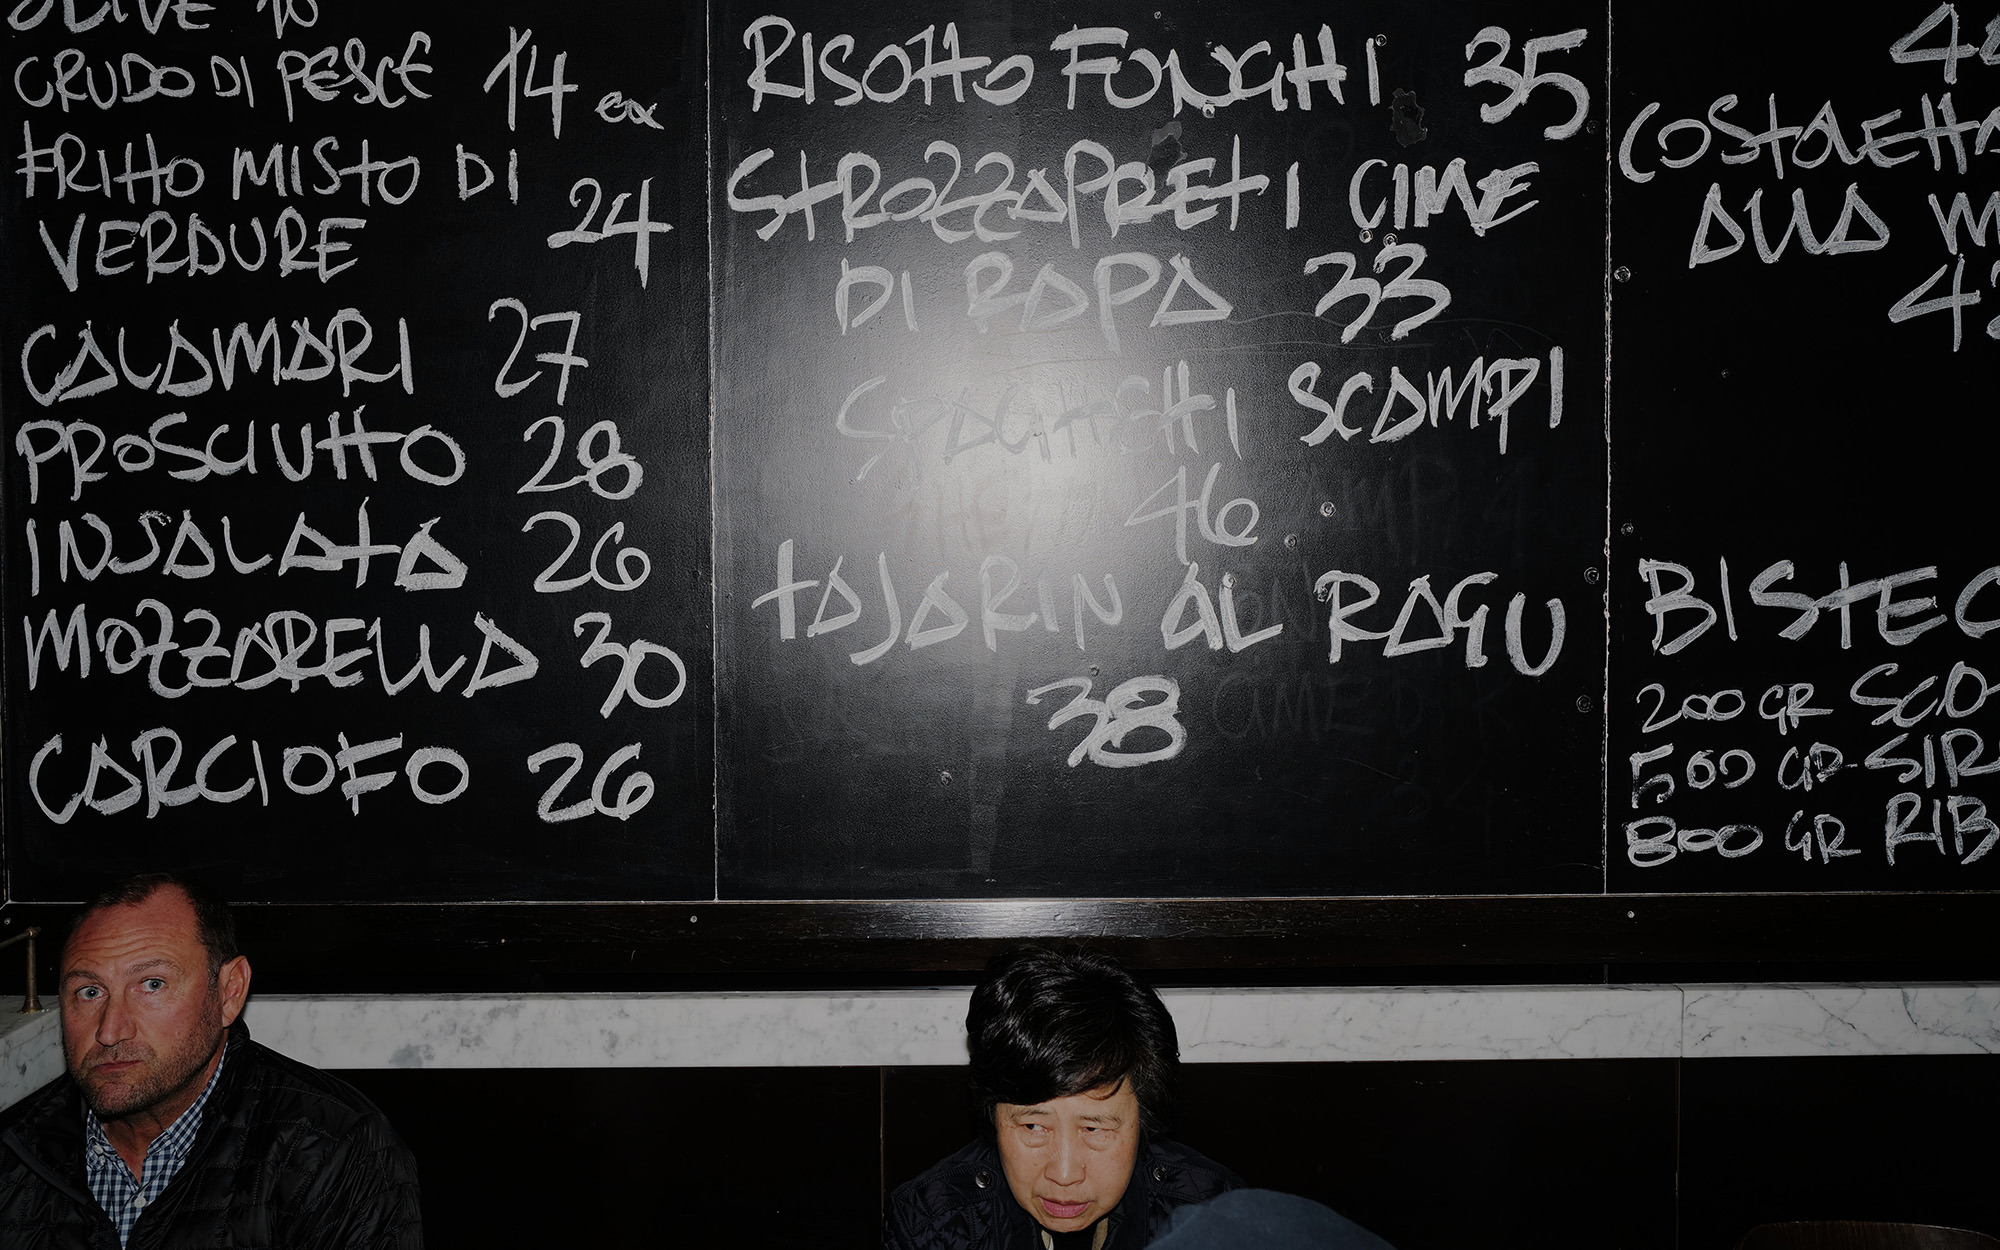 OLIVE 10
CRUDO DI PESCE 14 ea
FRITTO MISTO DI
VERDURE 24
CALAMARI 27
PROSCIUTTO 28
INSALATA 26
MOZZARELLA 30
CARCIOFO 26
RISOTTO FUNGHI 35
STROZZAPRETI CIME
DI RAPA 33
SPAGHETTI SCAMPI
46
TAJARIN AL RAGU
38
COSTOLETTA
ALLA M
BISTEC
200 GR SCO
500 GR-SIR
800 GR RIB